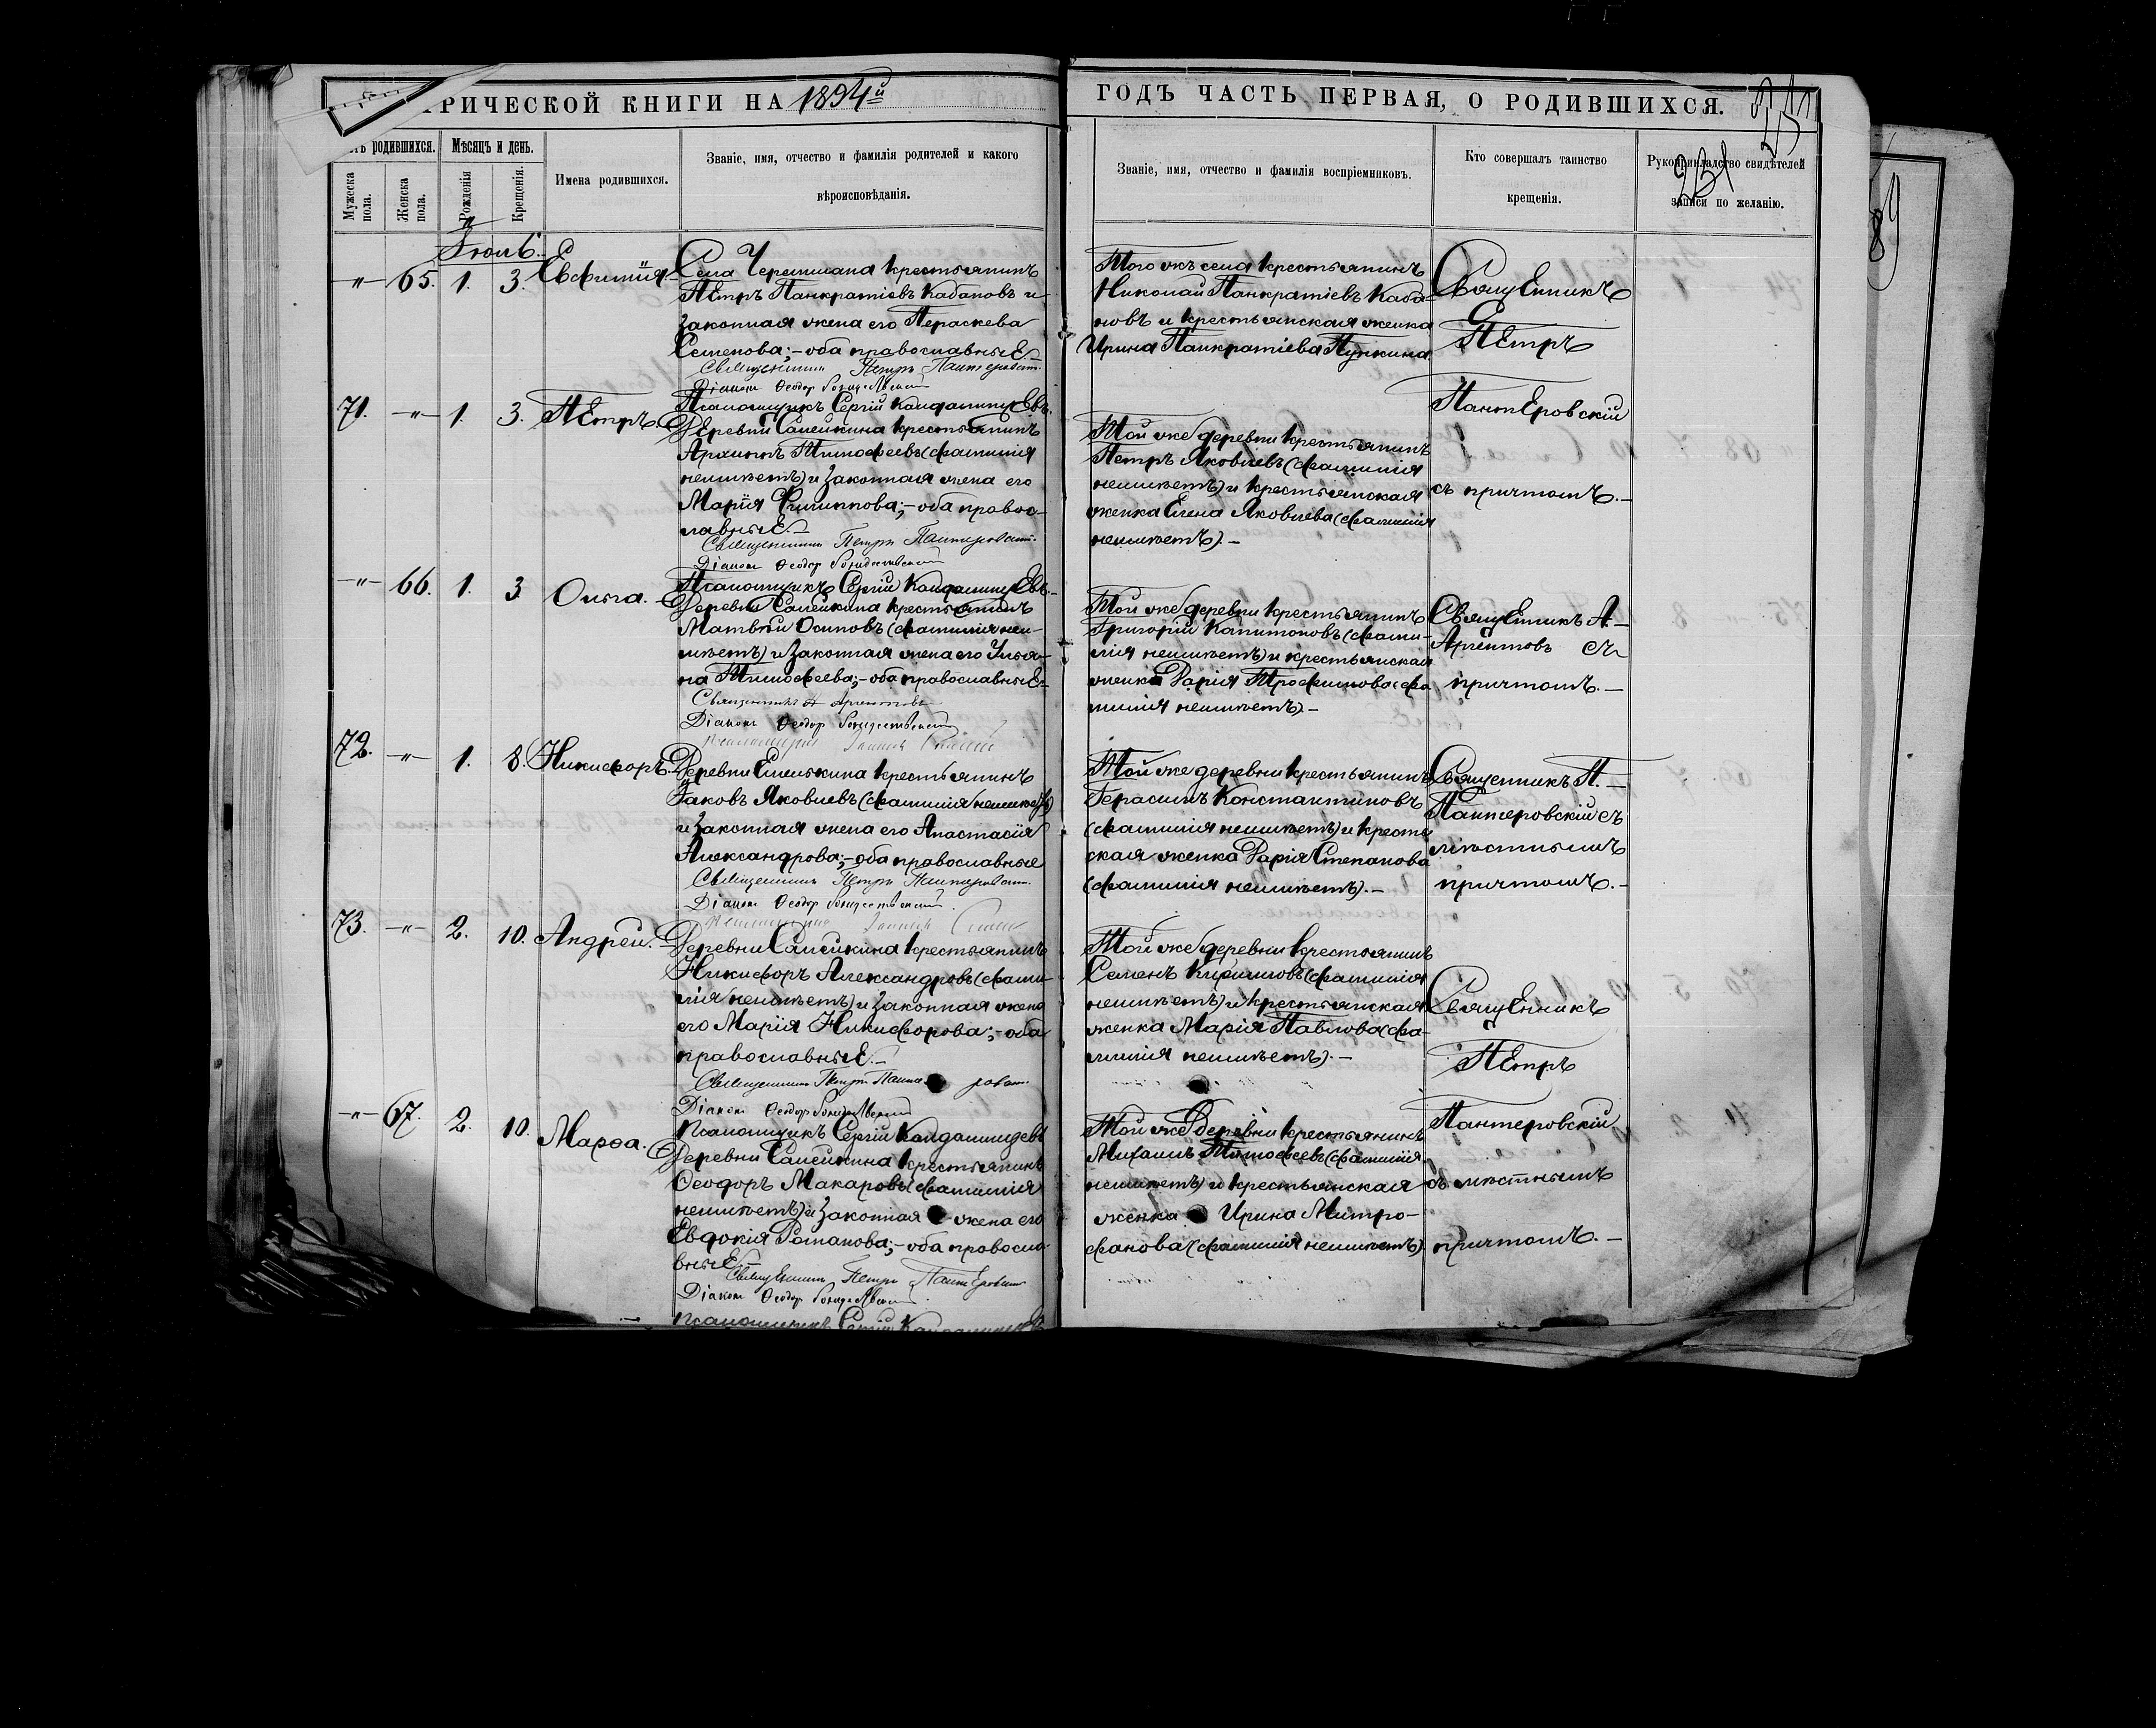 РИЧЕСКОЙ КНИГИ НА 1894й
ГОДЪ ЧАСТЬ ПЕРВАЯ, О РОДИВШИХСЯ.
231
89
родившихся.
Мѣсяцъ и день.
Мужеска пола.
Женска пола.
Рожденія
Крещенія.
Имена родившихся.
Званіе, имя, отчество и фамилія родителей и какого
вѣроисповѣданія.
Званіе, имя, отчество и фамилія воспріемниковъ.
Кто совершалъ таинство
крещенія.
Рукоприкладство свидѣтелей
записи по желанію.
Іюль
—„— 65. 1. 3. Евфимія.
Села Черемшана крестьянинъ
Петръ Панкратіевъ Кабановъ и
законная жена его Параскева
Семенова; – оба православные. –
Священникъ Петръ Пантеровскій.
Діаконъ Ѳеодор Рождественскій
Псаломщикъ Сергій Кандалинцевъ.
Того жъ села крестьянинъ
Николай Панкратіевъ Каба-
новъ и крестьянская женка
Ирина Панкратіева Пункина.
Священникъ
Петръ
Пантеровскій
съ причтомъ. –
71. —„— 1. 3. Петръ.
Деревни Салейкина крестьянинъ
Архиппъ Тимофеевъ (фамилія
неимѣетъ) и законная жена его
Марія Филиппова; – оба правос-
лавные. –
Священникъ Петръ Пантеровскій.
Діаконъ Ѳеодор Рождественскій
Псаломщикъ Сергій Кандалинцевъ. –
Той же деревни крестьянинъ
Петръ Яковлевъ (фамилія
неимѣетъ) и крестьянская
женка Елена Яковлева (фамилія
неимѣетъ). –
—„— 66. 1. 3 Ольга. –
Деревни Салейкина крестьянинъ
Матвѣй Осиповъ (фамилія неи-
мѣетъ) и законная жена его Улья-
на Тимофеева; – оба православные –
Священникъ А Аргентовъ
Діаконъ Ѳеодор Рождественскій
Той же деревни крестьянинъ
Григорій Капитоновъ (фами-
лія неимѣетъ) и крестьянская
женка Дарія Трофимова (фа-
милія неимѣетъ) –
Священникъ А. –
Аргентовъ съ
причтомъ. –
72. —„— 1. 8. Никифоръ.
Деревни Елшкина крестьянинъ
Яковъ Яковлевъ (фамилія неимѣетъ)
и законная жена его Анастасія
Александрова; – оба православные
Священникъ Петръ Пантеровскій.
Діаконъ Ѳеодор Рождественскій.
Той же деревни крестьянинъ
Герасимъ Константиновъ
(фамилія неимѣетъ) и крестья
ская женка Дарія Степанова
(фамилія неимѣетъ). –
Священникъ П. –
Пантеровскій съ
мѣстнымъ
причтомъ. –
73. —„— 2. 10. Андрей. –
Деревни Салейкина крестьянинъ
Никифоръ Александровъ (фами-
лія неимѣетъ) и законная жена
его Марія Никифорова; – оба
православные. –
Священникъ Петръ Пантеровскій.
Діаконъ Ѳеодор Рождественскій
Псаломщикъ Сергій Кандалинцевъ
Той же деревни крестьянинъ
Семенъ Кириловъ (фамилія
неимѣетъ) и крестьянская
женка Марія Павлова (фа-
милія неимѣетъ). –
Священникъ
Петръ
Пантеровскій
съ мѣстнымъ
причтомъ. –
—„— 67. 2. 10. Марѳа.
Деревни Салейкина крестьянинъ
Ѳеодоръ Макаровъ (фамилія
неимѣетъ) и законная жена его
Евдокія Романова; – оба правосла-
вные –
Священникъ Петръ Пантеровскій
Діаконъ Ѳеодор Рождественскій.
Псаломщикъ Сергій Кандалинцевъ
Той же деревни крестьянинъ
Михаилъ Тимофеевъ (фамилія
неимѣетъ) и крестьянская
женка Ирина Митро-
фанова (фамилія неимѣетъ)